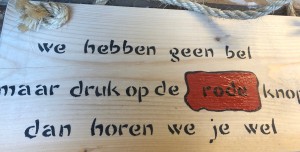 we hebben geen bel
maar druk op de rode knop
dan horen we je wel